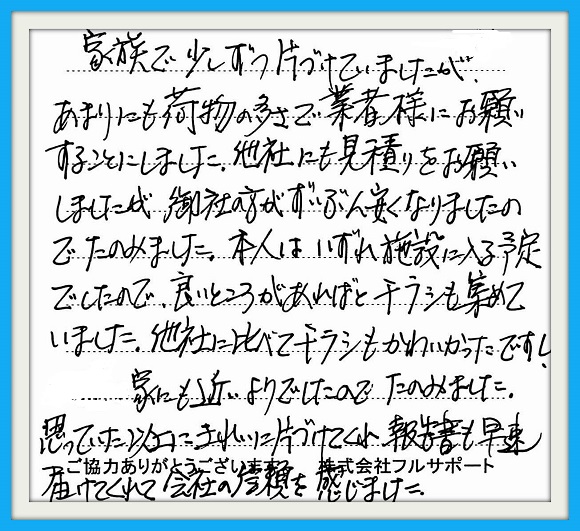 家族で少しずつ片づけていましたが、
あまりにも荷物の多さで業者様にお願い
することにしました。他社にも見積りをお願い
しましたが、御社の方がずいぶん安くなりましたの
でたのみました。本人はいずれ施設に入る予定
でしたので、良いところがあればとチラシも集めて
いました。他社に比べてチラシもかわいかったです!
家にも近いよりでしたのでたのみました。
思っていた以上にきれいに片づけてくれ、報告書も早速
ご協力ありがとうございます 株式会社フルサポート
届けてくれて会社の信頼を感じました。